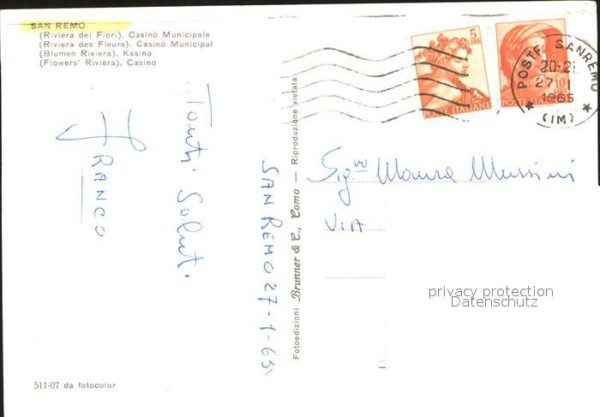 SAN REMO
(Riviera dei Fiori). Casinò Municipale
(Riviera des Fleurs). Casinò Municipal
(Blumen Riviera). Kasino
(Flowers' Riviera). Casino
Tanti Saluti
FRANCO
SAN REMO 27-1-65
Fotoedizioni Brunner & C., Como — Riproduzione vietata
5
LIRE
POSTE ITALIANE
10
POSTE ITALIANE
POSTE SANREMO
20-21
27 1
1965
(IM)
Sig.na Maura Mussini
VIA
privacy protection
Datenschutz
511-07 da fotocolor